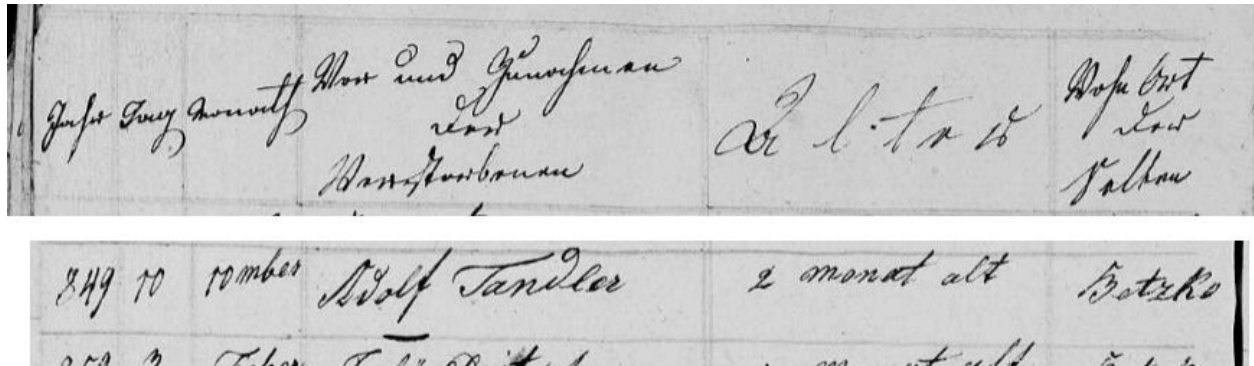 Jahr Tag Monath Vor und Zunahmen
der
Verstorbenen
Alter
Wohn Ort
der
Selben
849 10 10mber Adolf Tandler 2 monat alt Betzko
3 monat alt